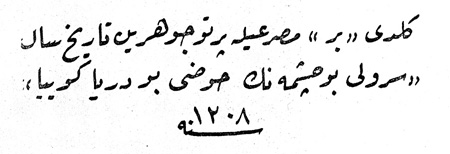 كلدى «بر» مصرعيله پرتو جوهرين تاريخ سال
«سرولى بوچشمه نك حوضى بو دريا كوييا»
سنه ١٢٠٨